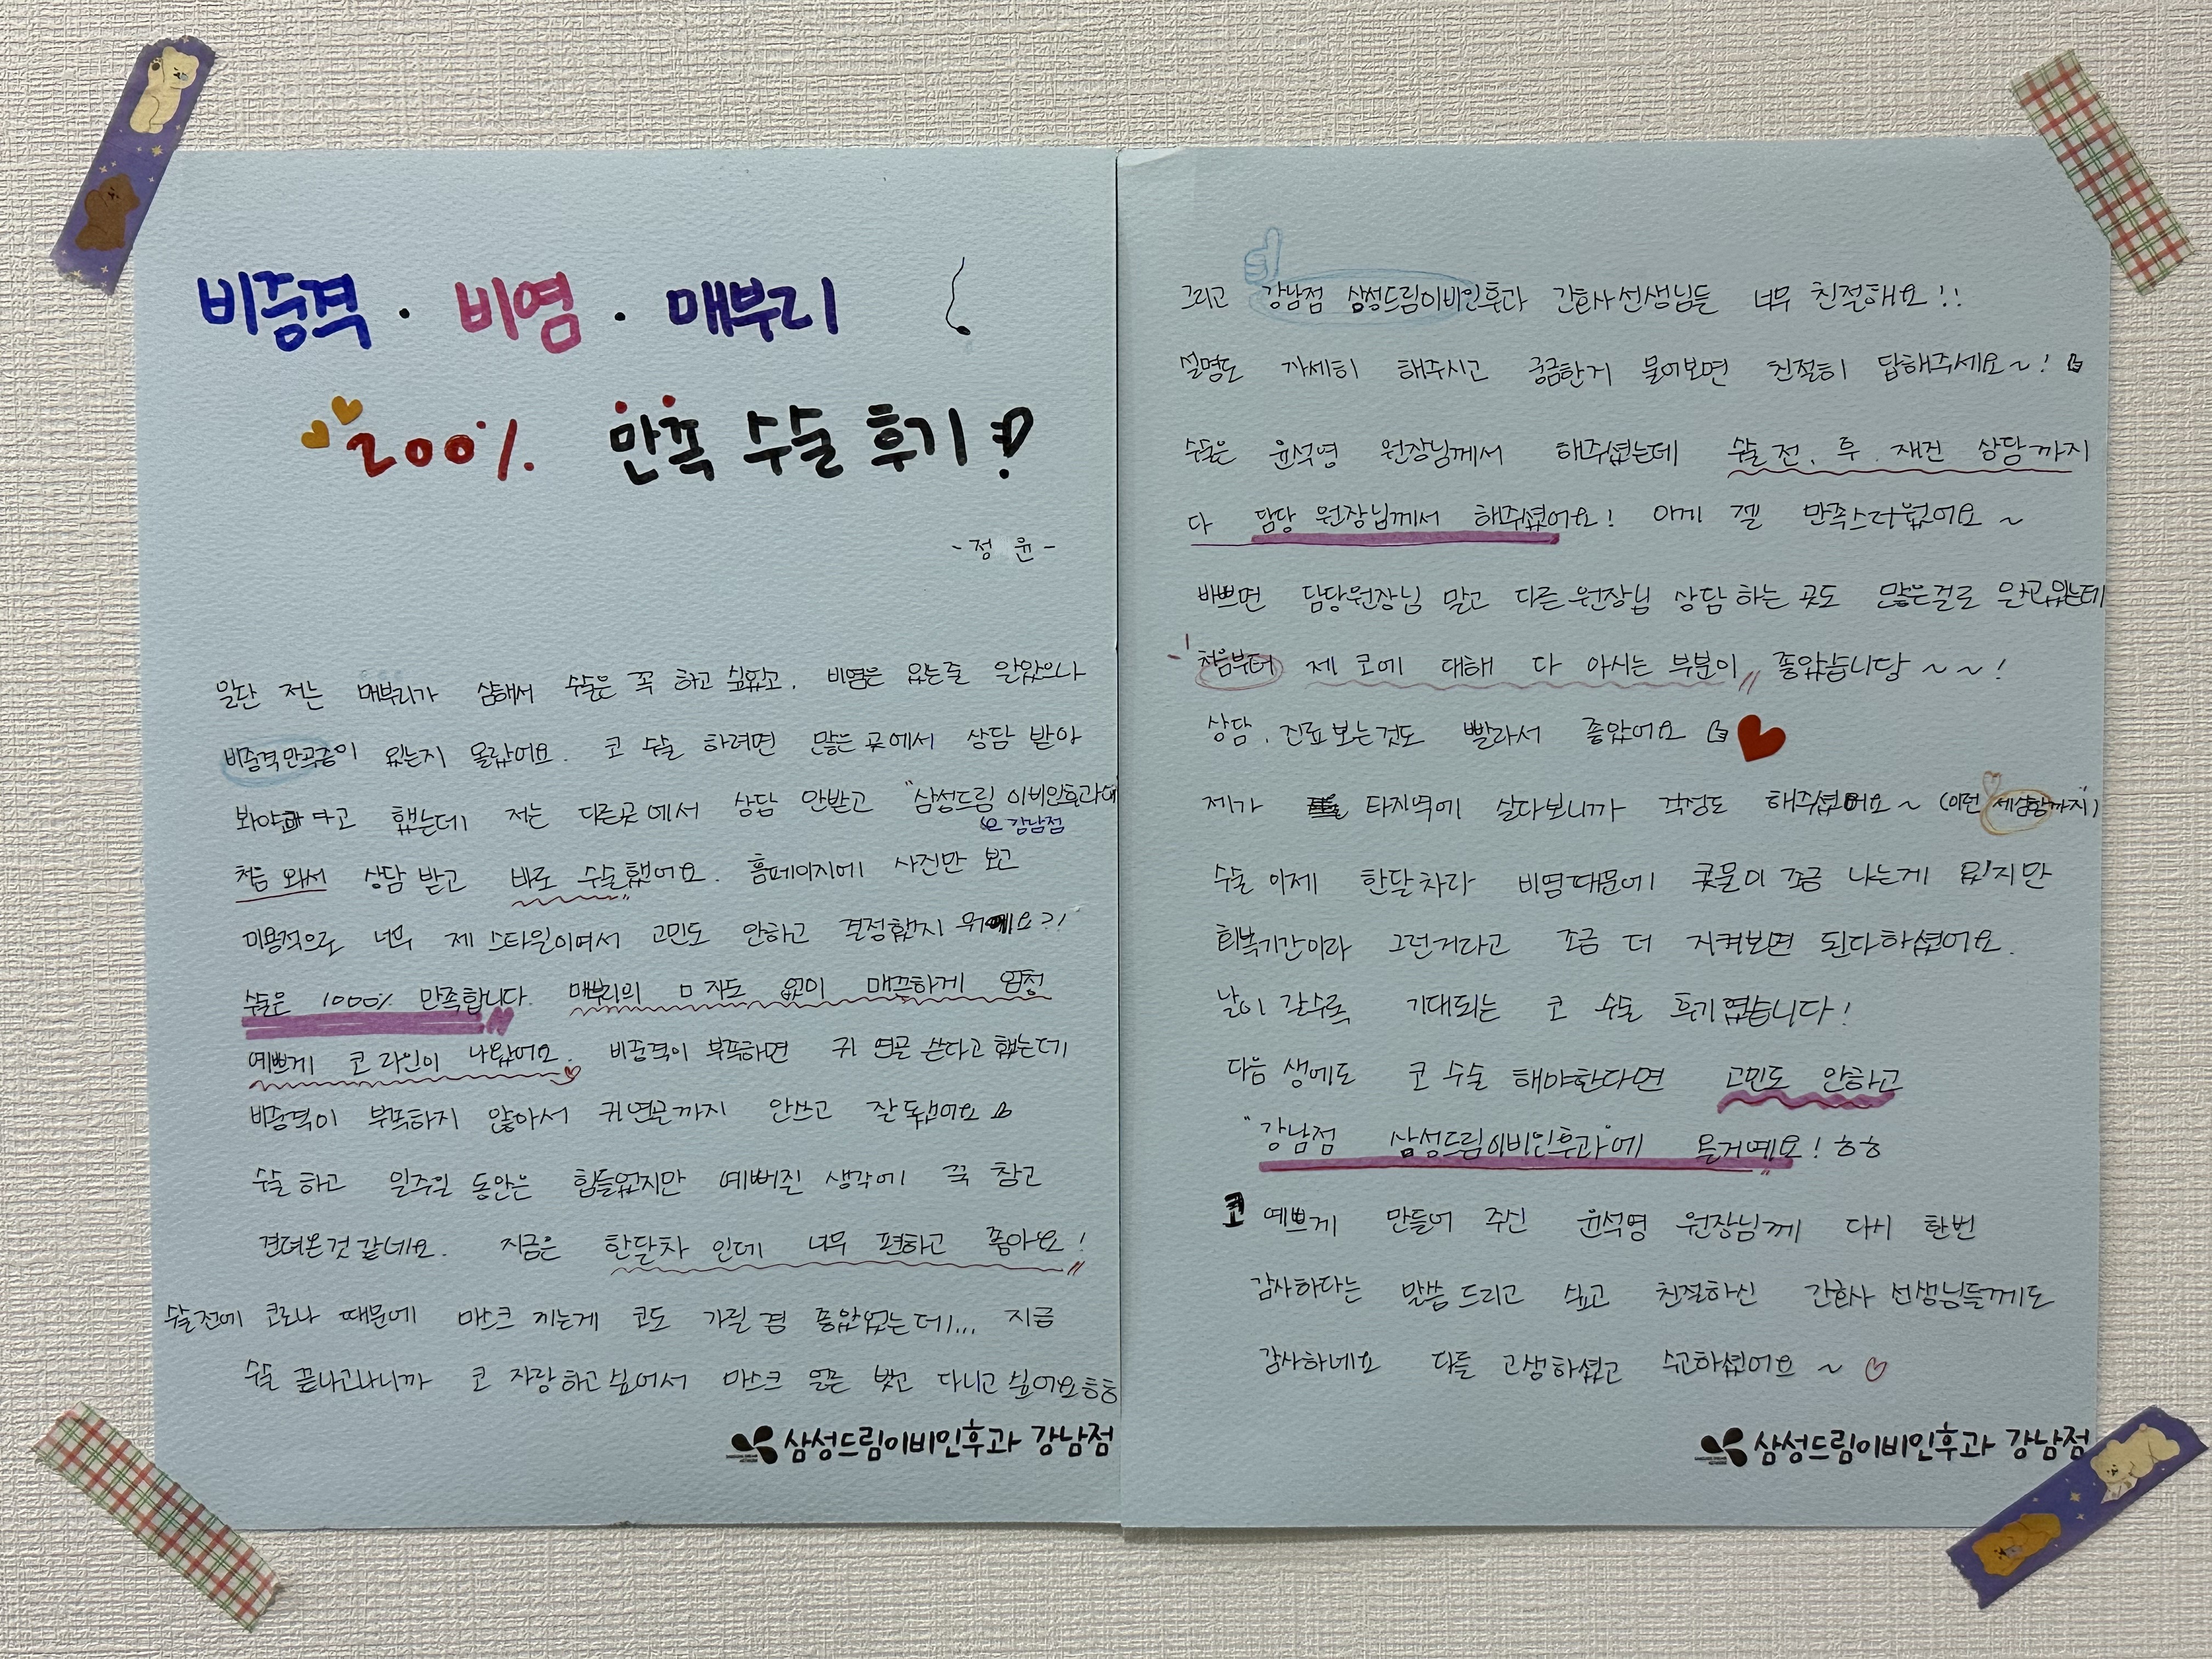 비중격 · 비염 · 매부리
200% 만족 수술 후기!?
- 정 윤 -
일단 저는 매부리가 심해서 수술은 꼭 하고 싶었고. 비염은 있는줄 알았으나
비중격만곡증이 있는지 몰랐어요. 코 수술 하려면 많은 곳에서 상담 받아
봐야 한다고 했는데 저는 다른곳에서 상담 안받고 "삼성드림 이비인후과에"
강남점
처음 와서 상담 받고 바로 수술했어요. 홈페이지에 사진만 보고
미용적으로 너무 제 스타일이여서 고민도 안하고 결정했지 뭐예요?!
수술은 1000% 만족합니다. 매부리의 ㅁ 자도 없이 매끈하게 엄청
예쁘게 코 라인이 나왔어요. 비중격이 부족하면 귀 연골 쓴다고 했는데
비중격이 부족하지 않아서 귀연골까지 안쓰고 잘 됐어요
수술 하고 일주일 동안은 힘들었지만 예뻐진 생각에 꾹 참고
견뎌온것 같네요. 지금은 한달차 인데 너무 편하고 좋아요!
수술전에 코로나 때문에 마스크 끼는게 코도 가릴 겸 좋았었는데... 지금
수술 끝나고나니까 코 자랑하고싶어서 마스크 얼른 벗고 다니고 싶어요ㅎㅎ
삼성드림이비인후과 강남점
그리고 강남점 삼성드림이비인후과 간호사선생님들 너무 친절해요!!
설명도 자세히 해주시고 궁금한거 물어보면 친절히 답해주세요~!
수술은 윤석영 원장님께서 해주셨는데 수술 전, 후. 재진 상담까지
다 담당 원장님께서 해주셨어요! 이게 젤 만족스러웠어요~
바쁘면 담당원장님 말고 다른원장님 상담하는 곳도 많은걸로 알고있는데
처음부터 제 코에 대해 다 아시는 부분이 좋았습니당~~!
상담, 진료보는것도 빨라서 좋았어요
제가 타지역에 살다보니까 걱정도 해주셨어요~ (이런 세심함까지)
수술 이제 한달차라 비염때문에 콧물이 조금 나는게 있지만
회복기간이라 그런거라고 조금 더 지켜보면 된다하셨어요.
날이 갈수록 기대되는 코 수술 후기였습니다!
다음 생에도 코 수술 해야한다면 고민도 안하고
"강남점 삼성드림이비인후과"에 올거예요! ㅎㅎ
코 예쁘게 만들어 주신 윤석영 원장님께 다시 한번
감사하다는 말씀 드리고 싶고 친절하신 간호사 선생님들께도
감사하네요 다들 고생하셨고 수고하셨어요~
삼성드림이비인후과 강남점